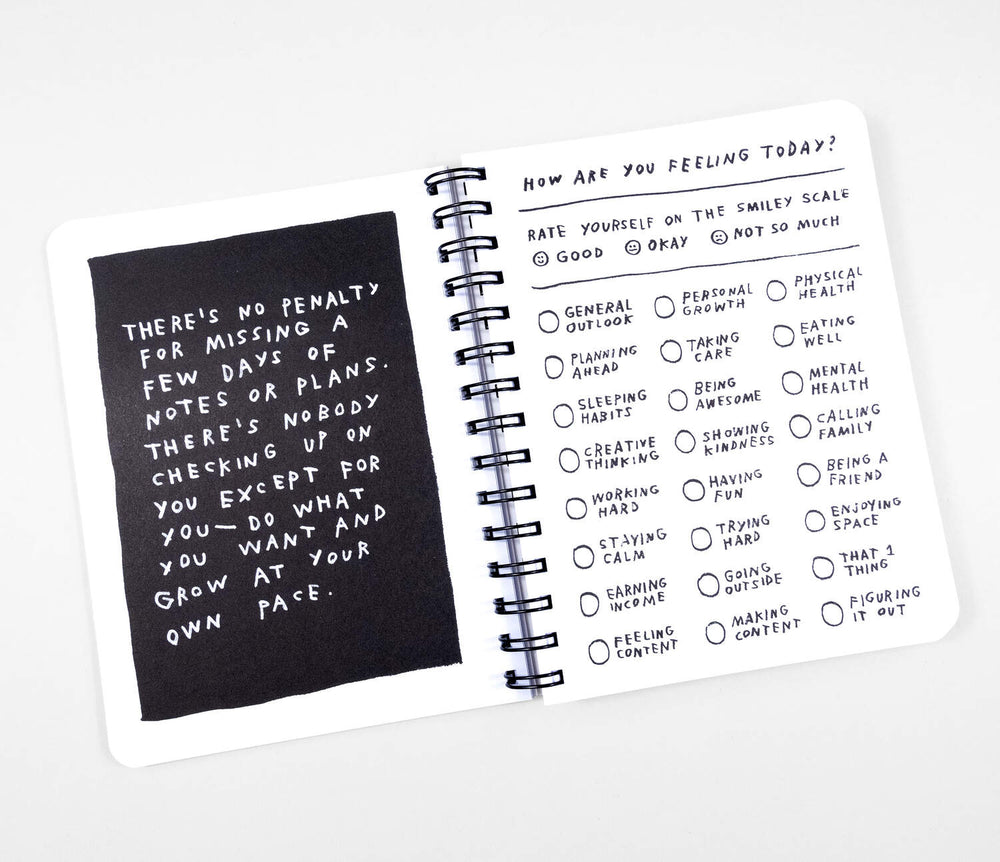 THERE'S NO PENALTY
FOR MISSING A
FEW DAYS OF
NOTES OR PLANS.
THERE'S NOBODY
CHECKING UP ON
YOU EXCEPT FOR
YOU—DO WHAT
YOU WANT AND
GROW AT YOUR
OWN PACE.
HOW ARE YOU FEELING TODAY?
RATE YOURSELF ON THE SMILEY SCALE
GOOD OKAY NOT SO MUCH
GENERAL
OUTLOOK
PERSONAL
GROWTH
PHYSICAL
HEALTH
PLANNING
AHEAD
TAKING
CARE
EATING
WELL
SLEEPING
HABITS
BEING
AWESOME
MENTAL
HEALTH
CREATIVE
THINKING
SHOWING
KINDNESS
CALLING
FAMILY
WORKING
HARD
HAVING
FUN
BEING A
FRIEND
STAYING
CALM
TRYING
HARD
ENJOYING
SPACE
EARNING
INCOME
GOING
OUTSIDE
THAT 1
THING
FEELING
CONTENT
MAKING
CONTENT
FIGURING
IT OUT